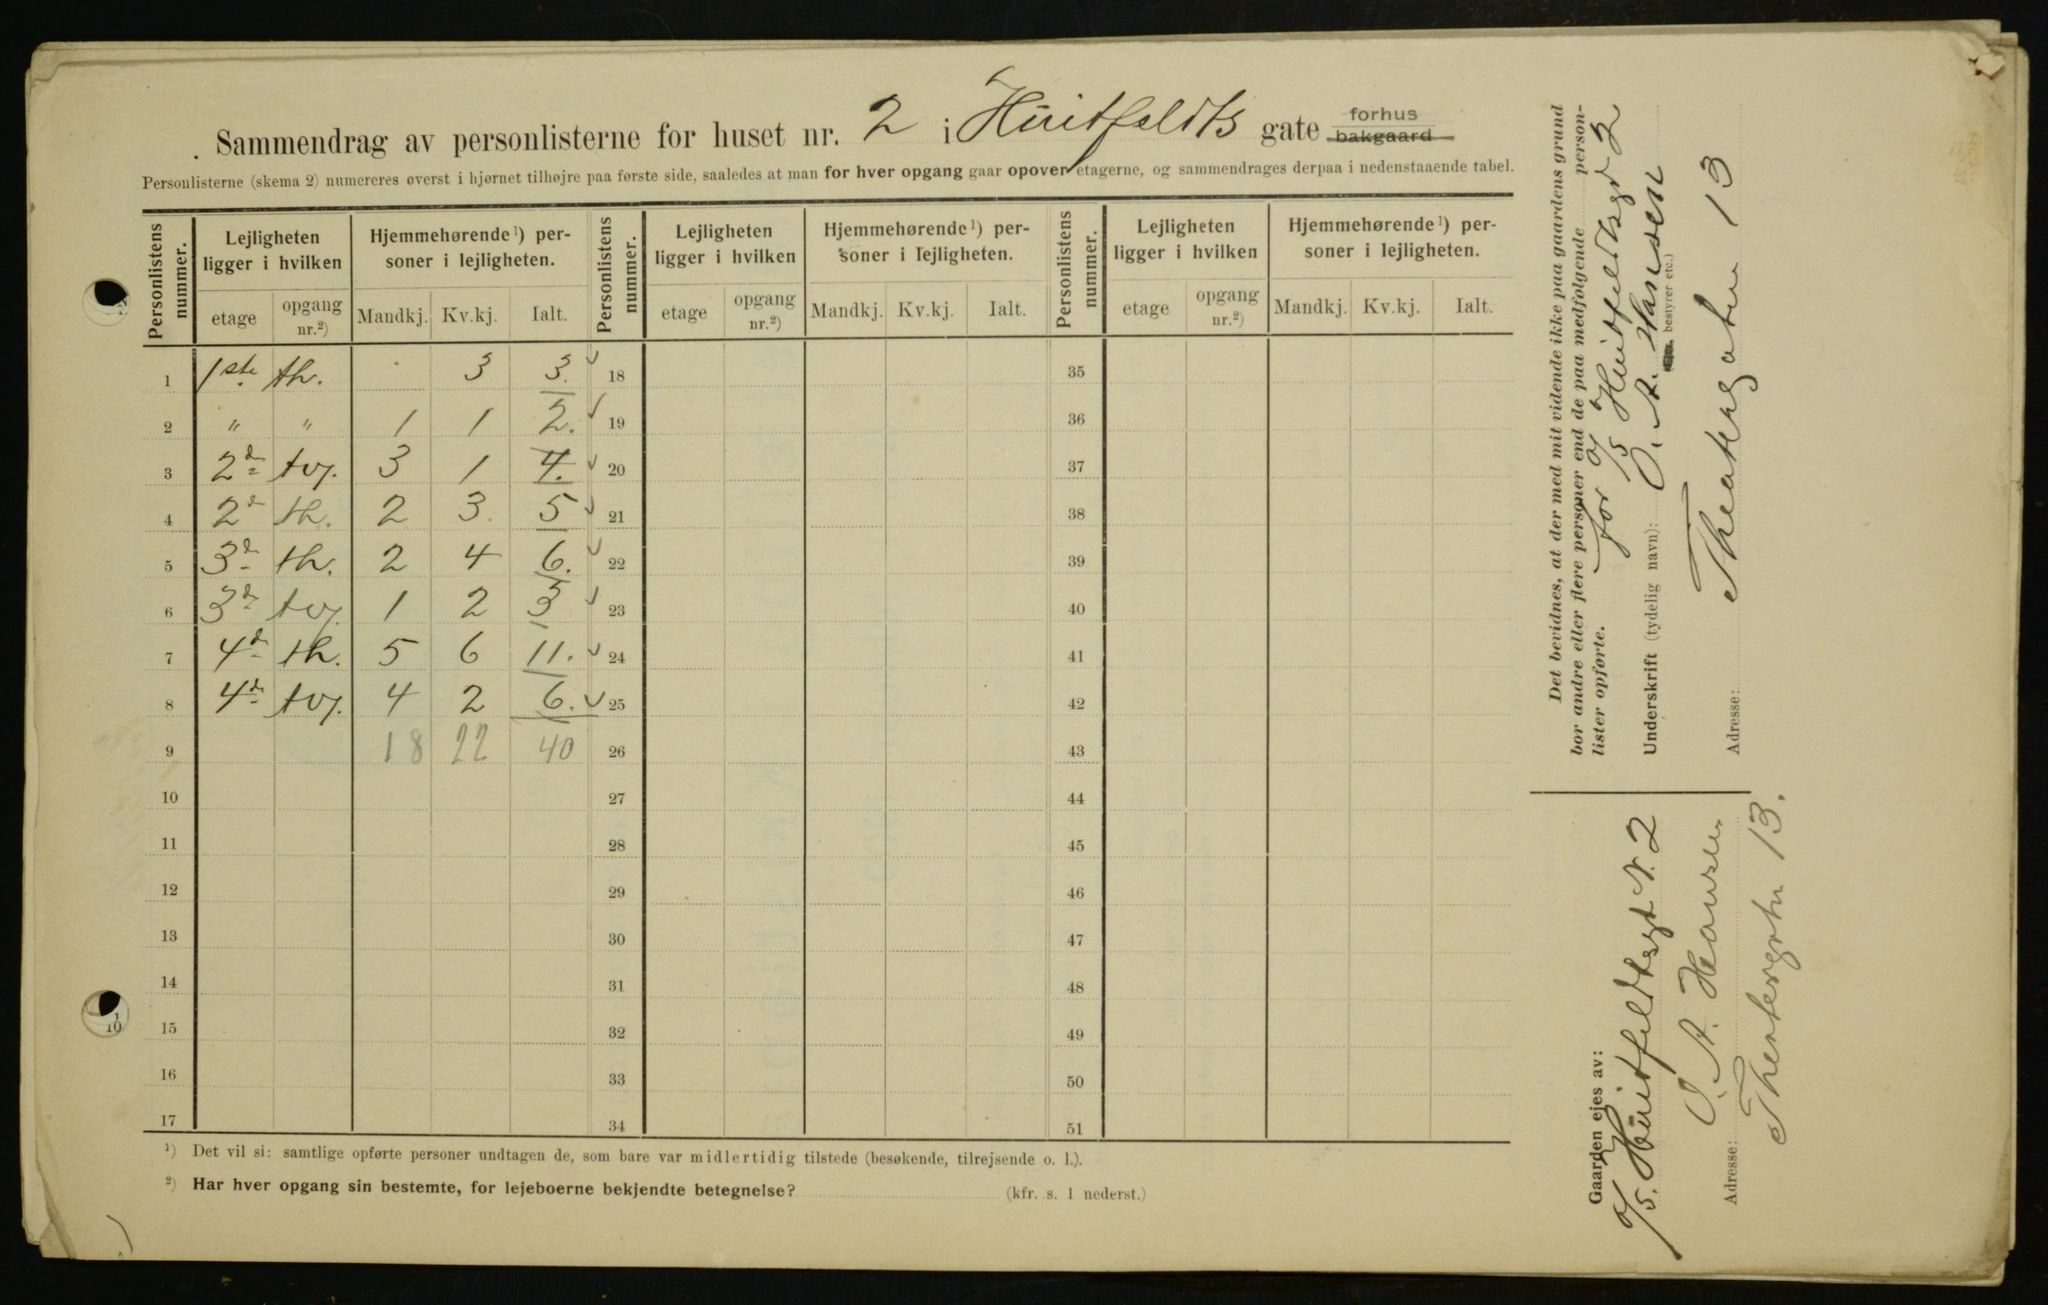 Sammendrag av personlisterne for huset nr. 2 i Huitfeldts gate forhus bakgaard
Personlisterne (skema 2) numereres øverst i hjørnet tilhøjre paa første side, saaledes at man for hver opgang gaar opover etagerne, og sammendrages derpaa i nedenstaaende tabel.
Personlistens nummer. Lejligheten ligger i hvilken Hjemmehørende ¹) personer i lejligheten. Personlistens nummer. Lejligheten ligger i hvilken Hjemmehørende ¹) personer i lejligheten. Personlistens nummer. Lejligheten ligger i hvilken Hjemmehørende ¹) personer i lejligheten.
etage opgang nr.²) Mandkj. Kv.kj. Ialt. etage opgang nr.²) Mandkj. Kv.kj. Ialt. etage opgang nr.²) Mandkj. Kv.kj. Ialt.
1 1ste th. 3 3. 18 35
2 " " 1 1 2. 19 36
3 2d tv. 3 1 4. 20 37
4 2d th. 2 3. 5 21 38
5 3d th. 2 4 6. 22 39
6 3d tv. 1 2 3 23 40
7 4d th. 5 6 11. 24 41
8 4d tv. 4 2 6. 25 42
9 18 22 40 26 43
10 27 44
11 28 45
12 29 46
13 30 47
14 31 48
15 32 49
16 33 50
17 34 51
¹) Det vil si: samtlige opførte personer undtagen de, som bare var midlertidig tilstede (besøkende, tilrejsende o. l.).
²) Har hver opgang sin bestemte, for lejeboerne bekjendte betegnelse? (kfr. s. 1 nederst.)
Det bevidnes, at der med mit vidende ikke paa gaardens grund
bor andre eller flere personer end de paa medfølgende personlister opførte.
for A/S Huitfeldtsgd 2
Underskrift (tydelig navn): O. A. Hansen
bestyrer etc.)
Adresse: Theatergaten 13
Gaarden ejes av:
A/S. Huitfeldtsgt N. 2
O. A. Hansen
Adresse: Theatergten 13.